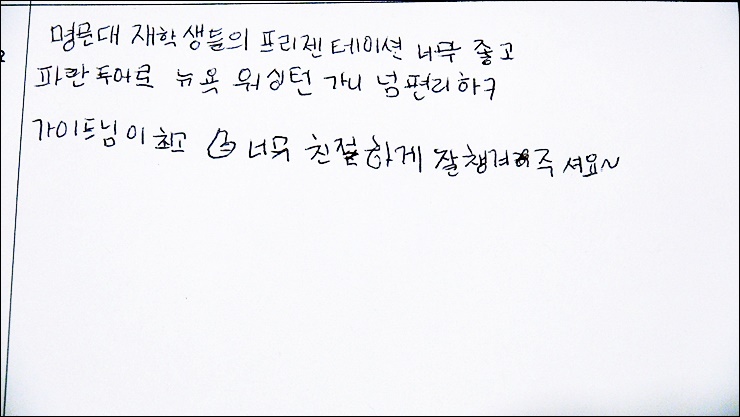 명문대 재학생들의 프리젠테이션 너무 좋고
파란투어로 뉴욕 워싱턴 가니 넘편리하구
가이드님이 최고 너무 친절하게 잘챙겨주셔요~